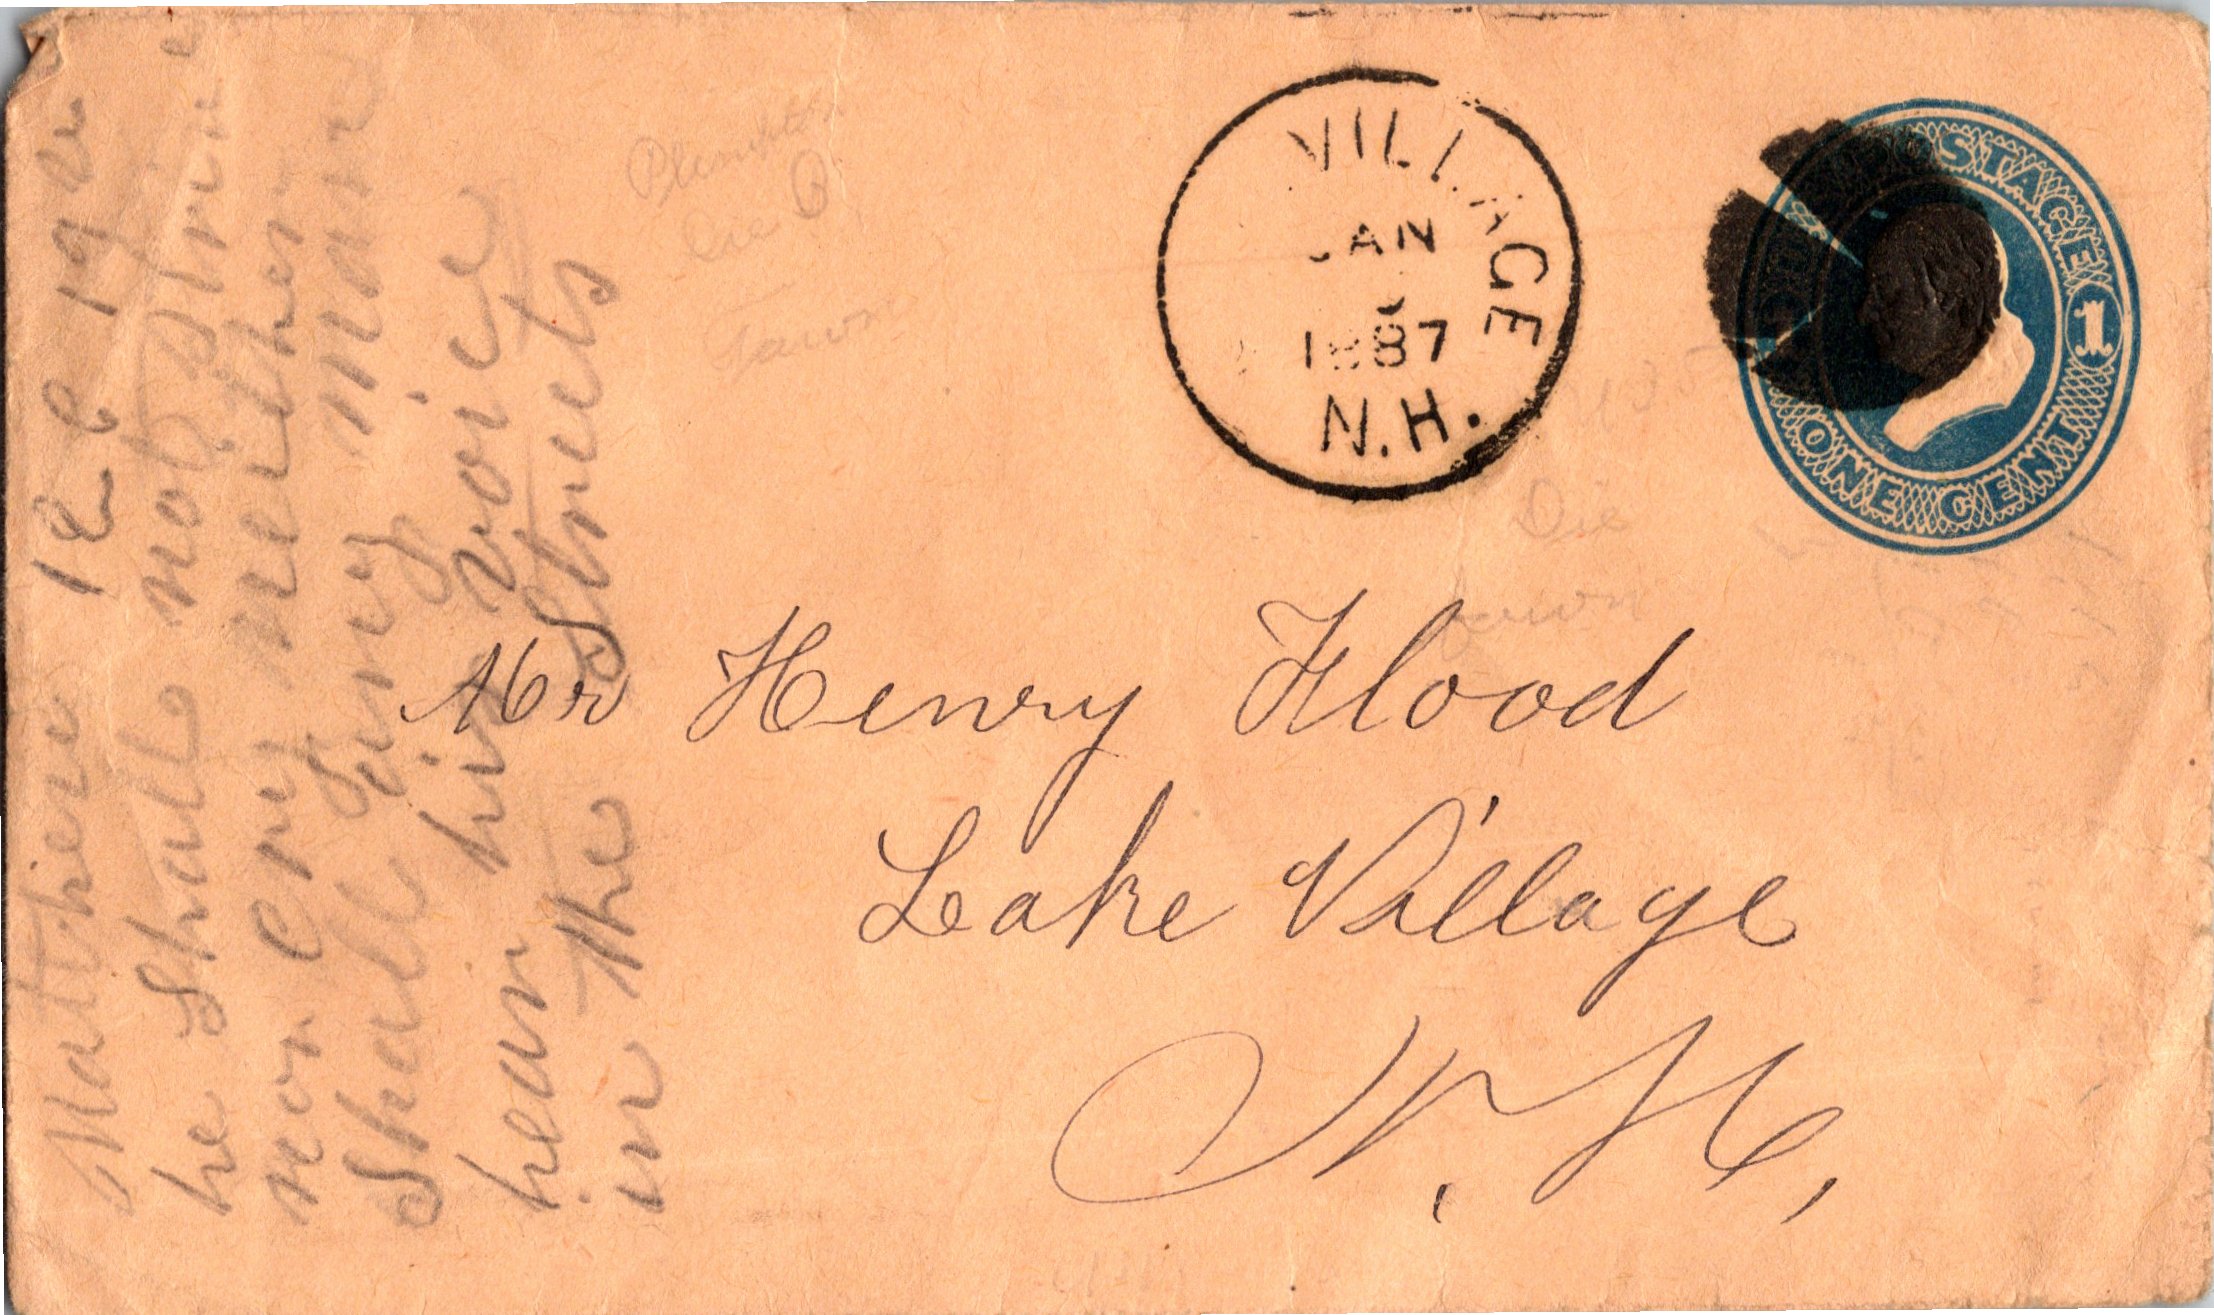 VILLAGE
JAN
1887
N.H.
POSTAGE
1
ONE CENT
Mr Henry Flood
Lake Village
N. H.
Matthew 12 19
he shall not strive
nor cry neither
shall any man
hear his voice
in the streets
Die B
Fawn
Die
fawn